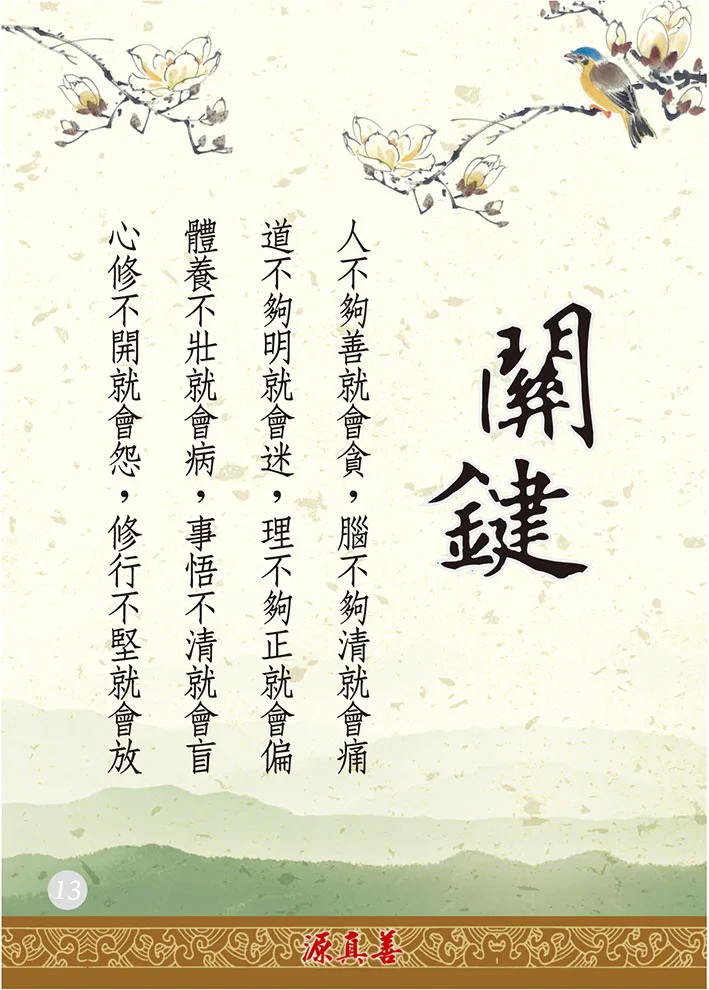 關鍵
人不夠善就會貪，腦不夠清就會痛
道不夠明就會迷，理不夠正就會偏
體養不壯就會病，事悟不清就會盲
心修不開就會怨，修行不堅就會放
13
源真善